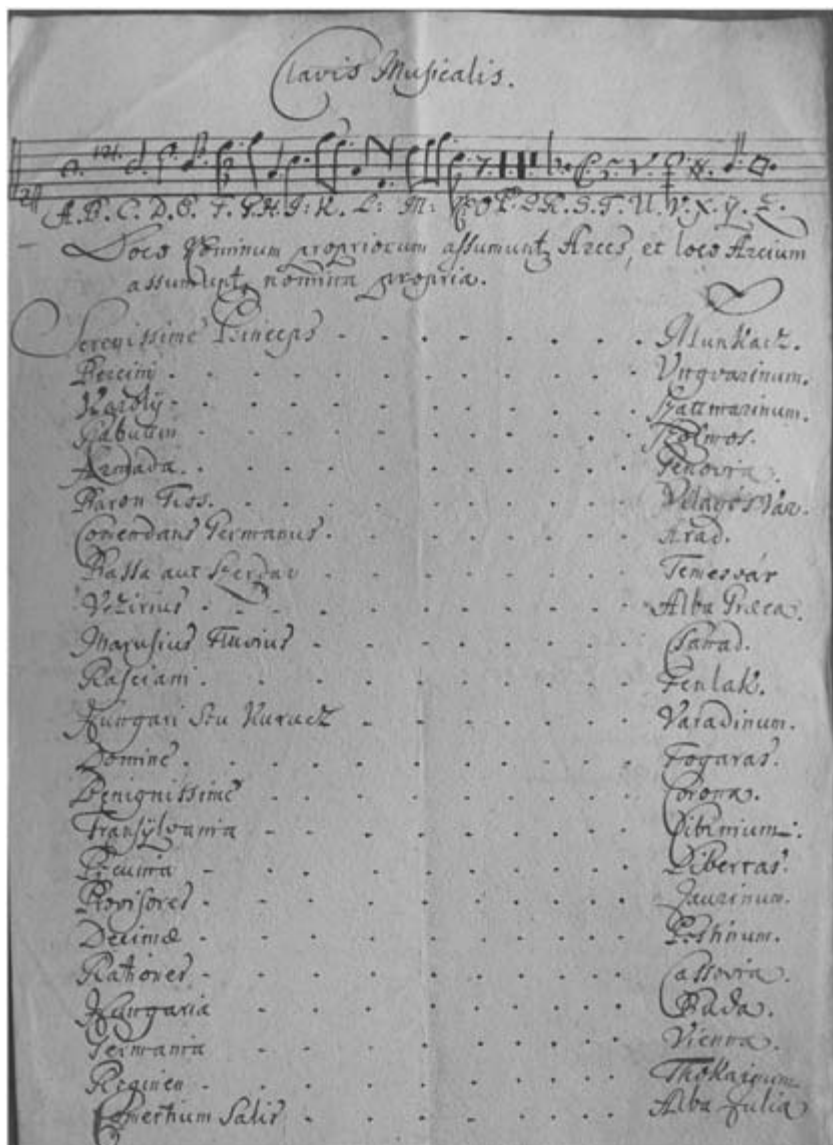 Clavis Musicalis.
A. B. C. D. E. F. G. H. I: K. L: M: N O P. Q. R. S. T. U. V. X. Y. Z.
Loco Nominum propriorum assumunt, Arces, et loco Arcium
assumunt, nomina propria.
Serenissime Princeps - - - - - - - - Munkacz.
Bercini - - - - - - - - Ungvarinum.
Karolÿ - - - - - - - - Szattmarinum.
Rabutin - - - - - - - - Solmos.
Armada. - - - - - - - -
Baron Tiss. - - - - - - - - Világos Vár.
Comendans Germanus - - - - - - - - Arad.
Bassa aut Szerdar - - - - - - - - Temesvár
Vezirius - - - - - - - - Alba Græca.
Marusius Fluvius - - - - - - - - Csanad.
Rasciani. - - - - - - - - Fenlak.
Hungari Seu Kurucz - - - - - - - - Varadinum.
Domine - - - - - - - - Fogaras.
Benignissime - - - - - - - - Corona.
Transÿlvania - - - - - - - - Cibinium.
Pecunia - - - - - - - -
Provisores - - - - - - - - Jaurinum.
Decimæ - - - - - - - - Pesthinum.
Rationes - - - - - - - - Cassovia.
Hungaria - - - - - - - - Buda.
Germania - - - - - - - - Vienna.
Regimen - - - - - - - - Thokainum
Comertium Salis - - - - - - - - Alba Julia